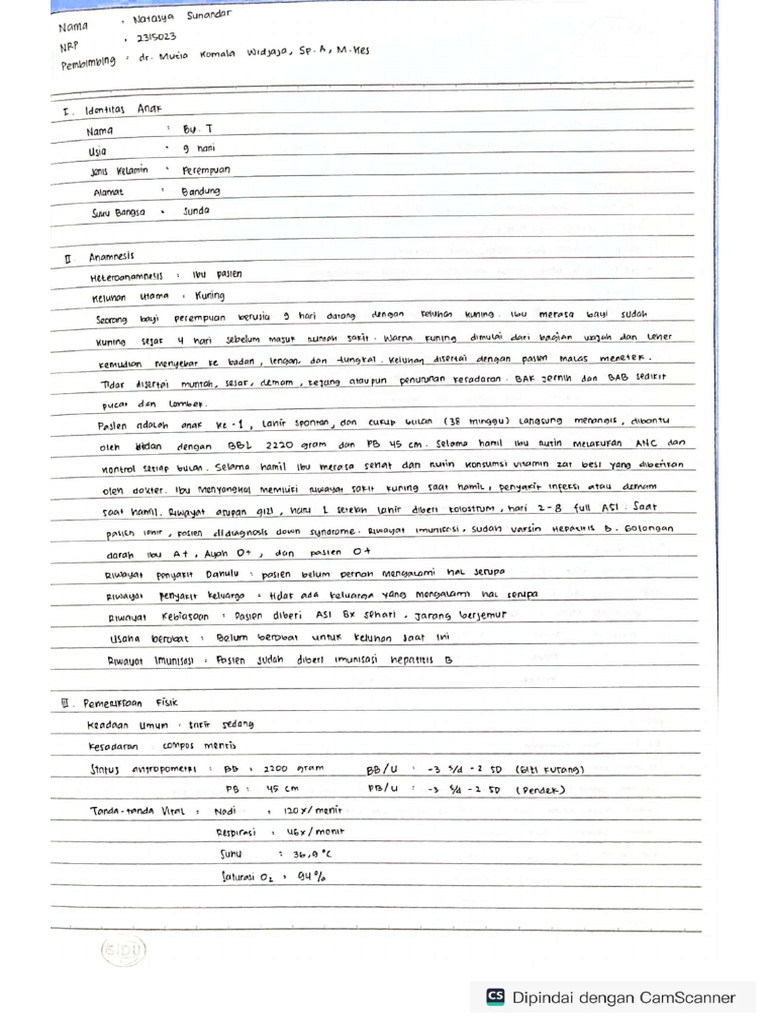 Nama : Natasya Sunandar
NRP : 2315023
Pembimbing : dr. Mucia Komala Widjaja, Sp.A, M.Kes
I. Identitas Anak
Nama : By. T
Usia : 9 hari
Jenis Kelamin : Perempuan
Alamat : Bandung
Suku Bangsa : Sunda
II Anamnesis
Heteroanamnesis : Ibu pasien
Keluhan Utama : Kuning
Seorang bayi perempuan berusia 9 hari datang dengan keluhan kuning. Ibu merasa bayi sudah
kuning sejak 4 hari sebelum masuk rumah sakit. Warna kuning dimulai dari bagian wajah dan leher
kemudian menyebar ke badan, lengan, dan tungkai. Keluhan disertai dengan pasien malas menetek.
Tidak disertai muntah, sesak, demam, kejang ataupun penurunan kesadaran. BAK jernih dan BAB sedikit
pucat dan lembek.
Pasien adalah anak ke-1, lahir spontan, dan cukup bulan (38 minggu) langsung menangis, dibantu
oleh bidan dengan BBL 2220 gram dan PB 45 cm. Selama hamil ibu rutin melakukan ANC dan
kontrol setiap bulan. Selama hamil ibu merasa sehat dan rutin konsumsi vitamin zat besi yang diberikan
oleh dokter. Ibu menyangkal memiliki riwayat sakit kuning saat hamil, penyakit infeksi atau demam
saat hamil. Riwayat asupan gizi, hari 1 setelah lahir diberi kolostrum, hari 2-8 full ASI. Saat
pasien lahir, pasien didiagnosis down syndrome. Riwayat imunisasi, sudah vaksin Hepatitis B. Golongan
darah ibu A+, Ayah O+, dan pasien O+
Riwayat Penyakit Dahulu : pasien belum pernah mengalami hal serupa
Riwayat Penyakit Keluarga : tidak ada keluarga yang mengalami hal serupa
Riwayat Kebiasaan : Pasien diberi ASI 8x sehari, jarang berjemur
Usaha berobat : Belum berobat untuk keluhan saat ini
Riwayat Imunisasi : Pasien sudah diberi imunisasi hepatitis B
III. Pemeriksaan Fisik
Keadaan Umum : sakit sedang
Kesadaran : compos mentis
Status antropometri : BB : 2200 gram BB/U : -3 s/d -2 SD (Gizi Kurang)
PB : 45 cm PB/U : -3 s/d -2 SD (Pendek)
Tanda-tanda Vital : Nadi : 120x/menit
Respirasi : 46x/menit
Suhu : 36,9 °C
Saturasi O2 : 94%
SIDU
CS Dipindai dengan CamScanner